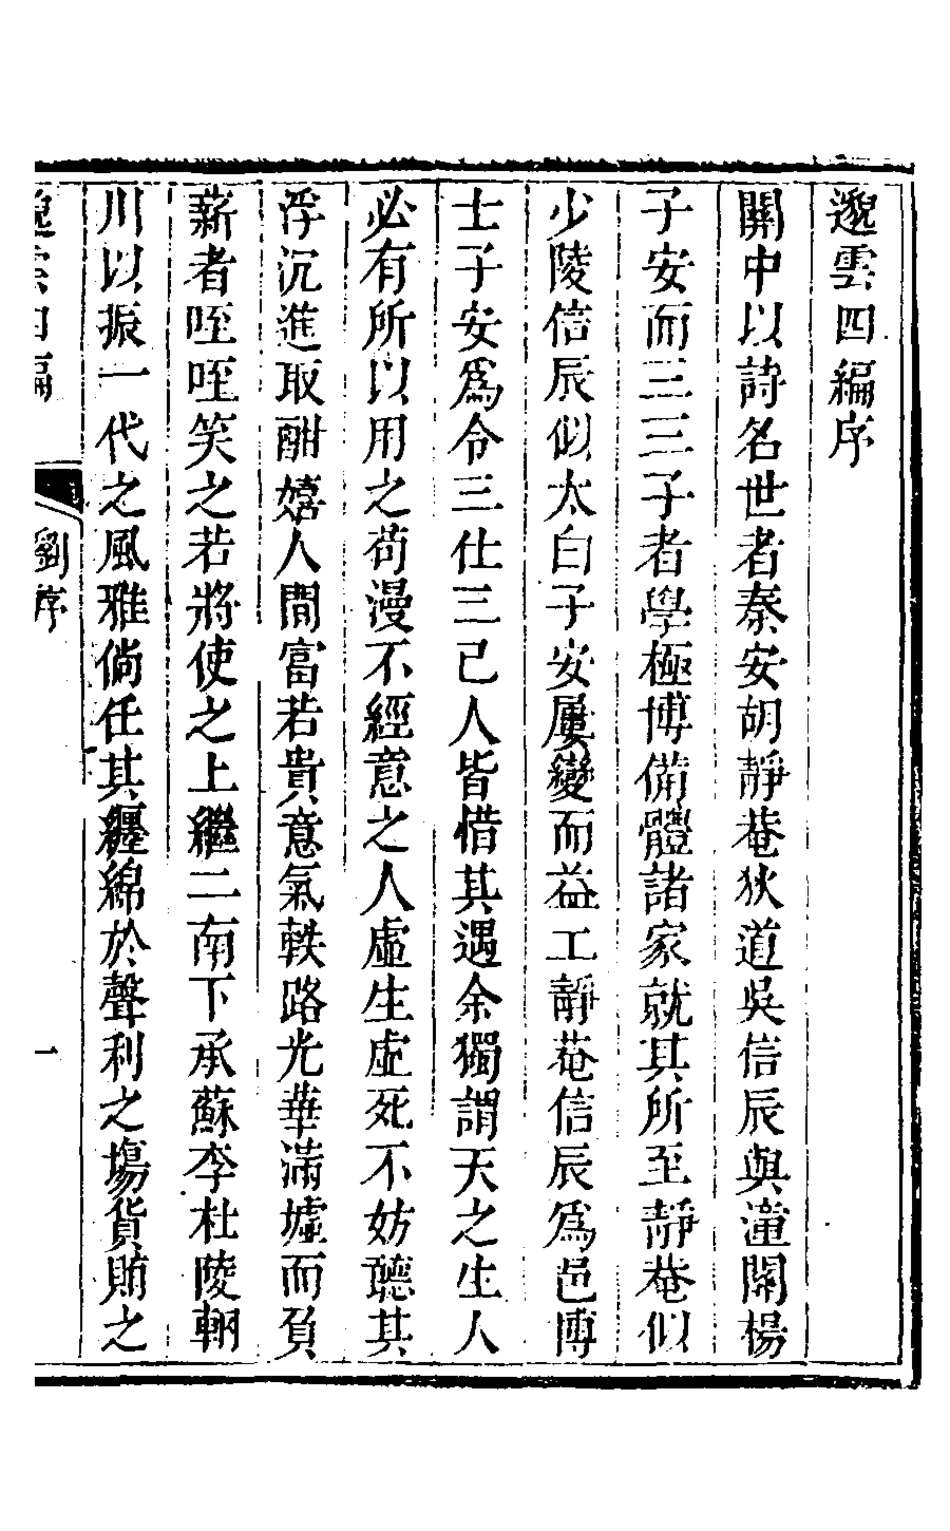 邈雲四編序
關中以詩名世者秦安胡靜菴狄道吳信辰與潼關楊
子安而三三子者學極博備體諸家就其所至靜菴似
少陵信辰似太白子安屢變而益工靜菴信辰爲邑博
士子安爲令三仕三己人皆惜其遇余獨謂天之生人
必有所以用之苟漫不經意之人虛生虛死不妨聽其
浮沉進取酣嬉人間富若貴意氣軼路光華滿墟而負
薪者咥咥笑之若將使之上繼二南下承蘇李杜陵輞
川以振一代之風雅倘任其纒綿於聲利之塲貨賄之
邈雲四編
劉序
一